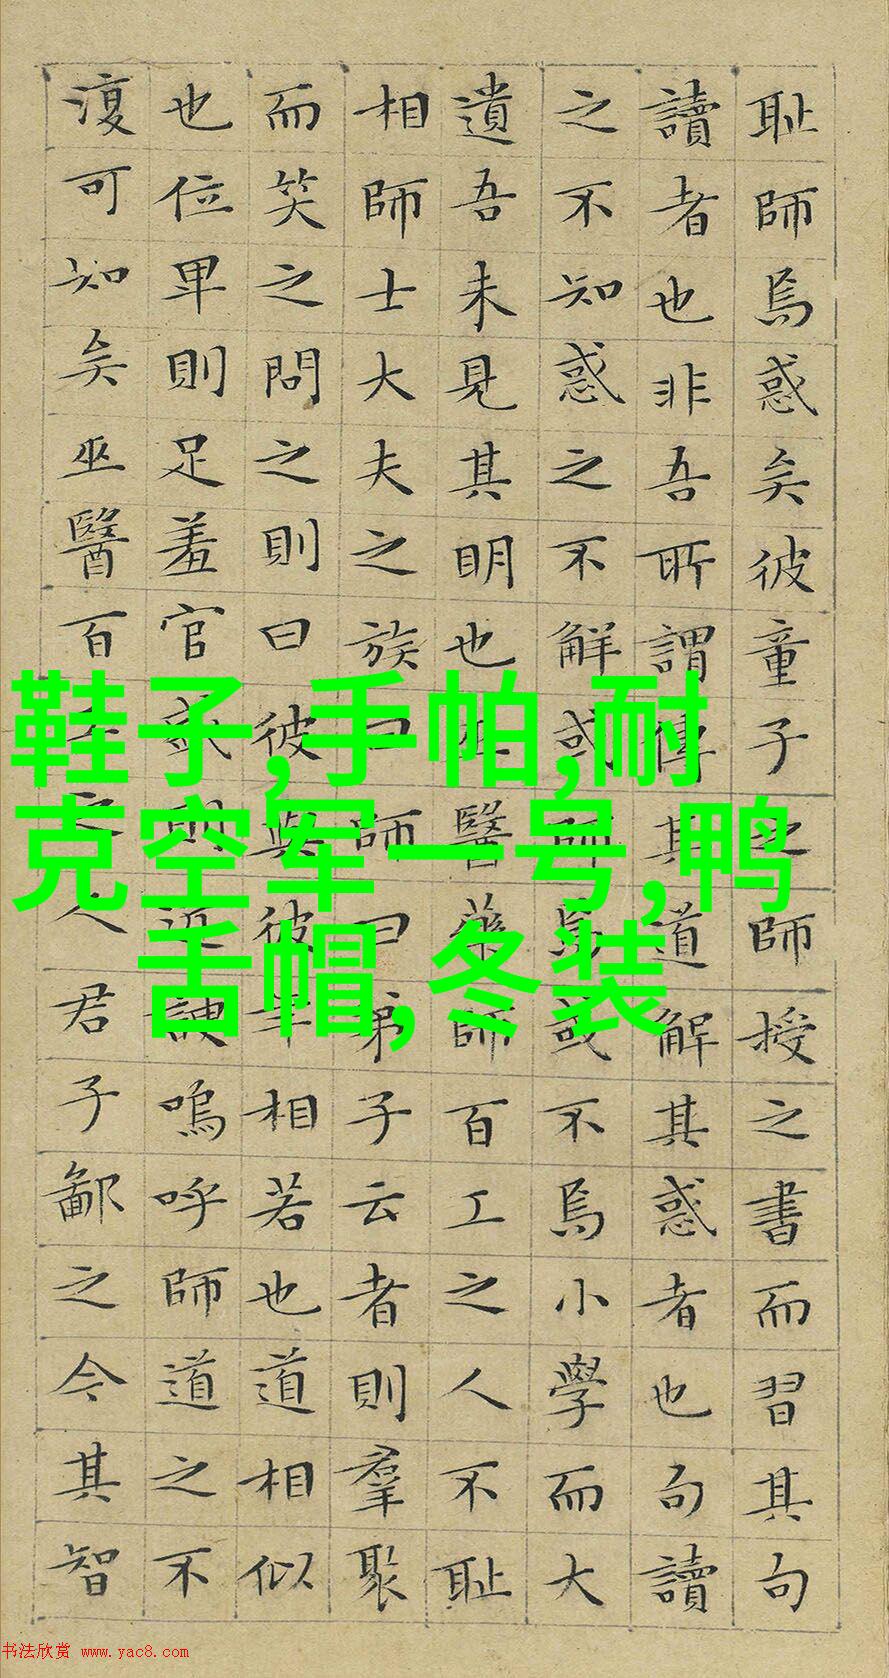 耻師焉惑矣彼童子之師授之書而習其句
讀者也非吾所謂傳其道解其惑者也句讀
之不知惑之不解或師焉或不焉小學而大
遺吾未見其明也巫醫藥師百工之人不耻
相師士大夫之族曰師曰弟子云者則羣聚
而笑之問之則曰彼與彼年相若也道相似
也位卑則足羞官盛則近諛嗚呼師道之不
復可知矣巫醫百工之人君子鄙之今其智
鞋子,手帕,耐
克空军一号,鸭
舌帽,冬装
书法欣赏 www.yac8.com